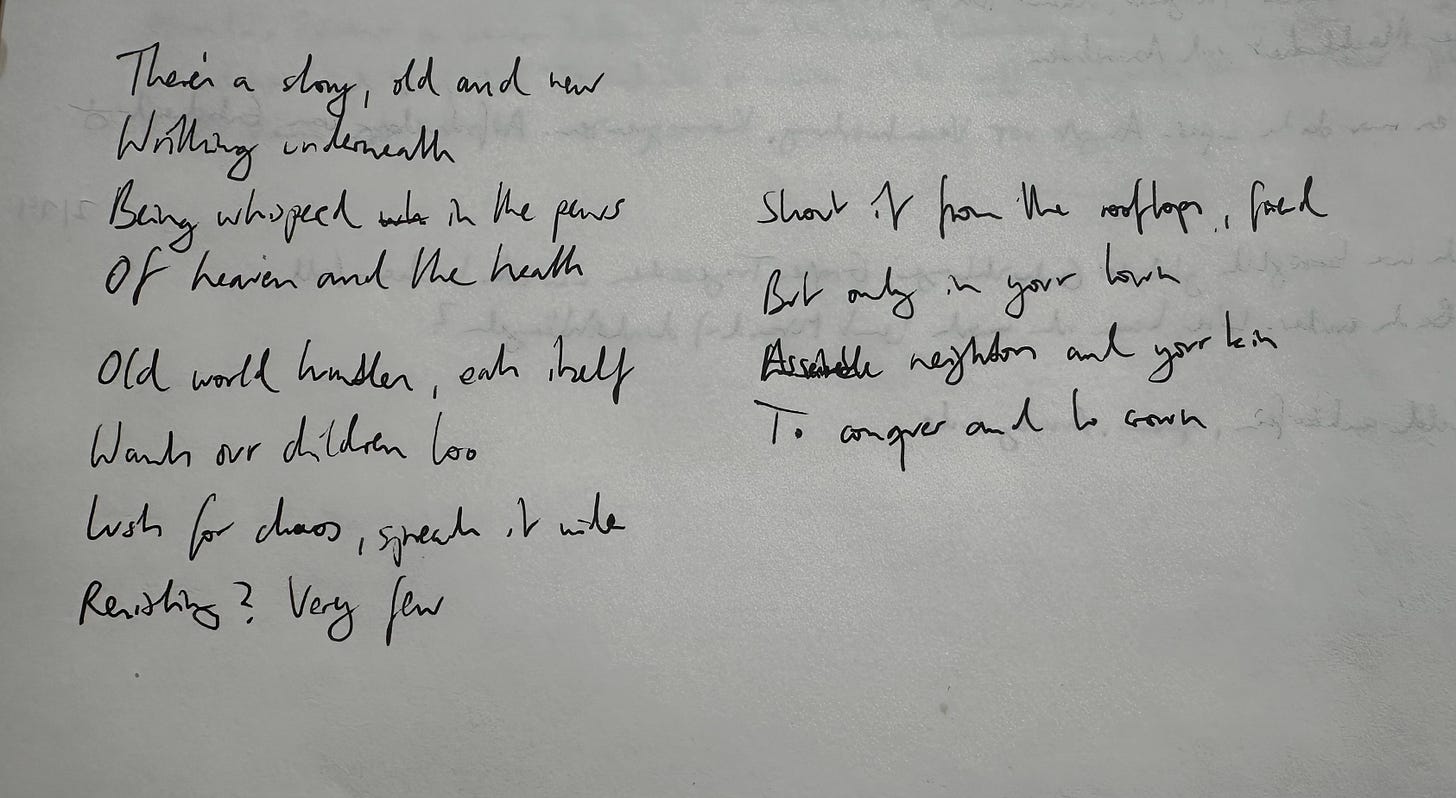 There's a story, old and new
Writhing underneath
Being whispeed in the pews
Of heaven and the heath
Old world , eats itself
Wants our children too
Lusts for chaos, spreads it wide
Resisting? Very few
Shout it from the rooftops, friend
But only in your town
Assemble neighbors and your kin
To conquer and to crown